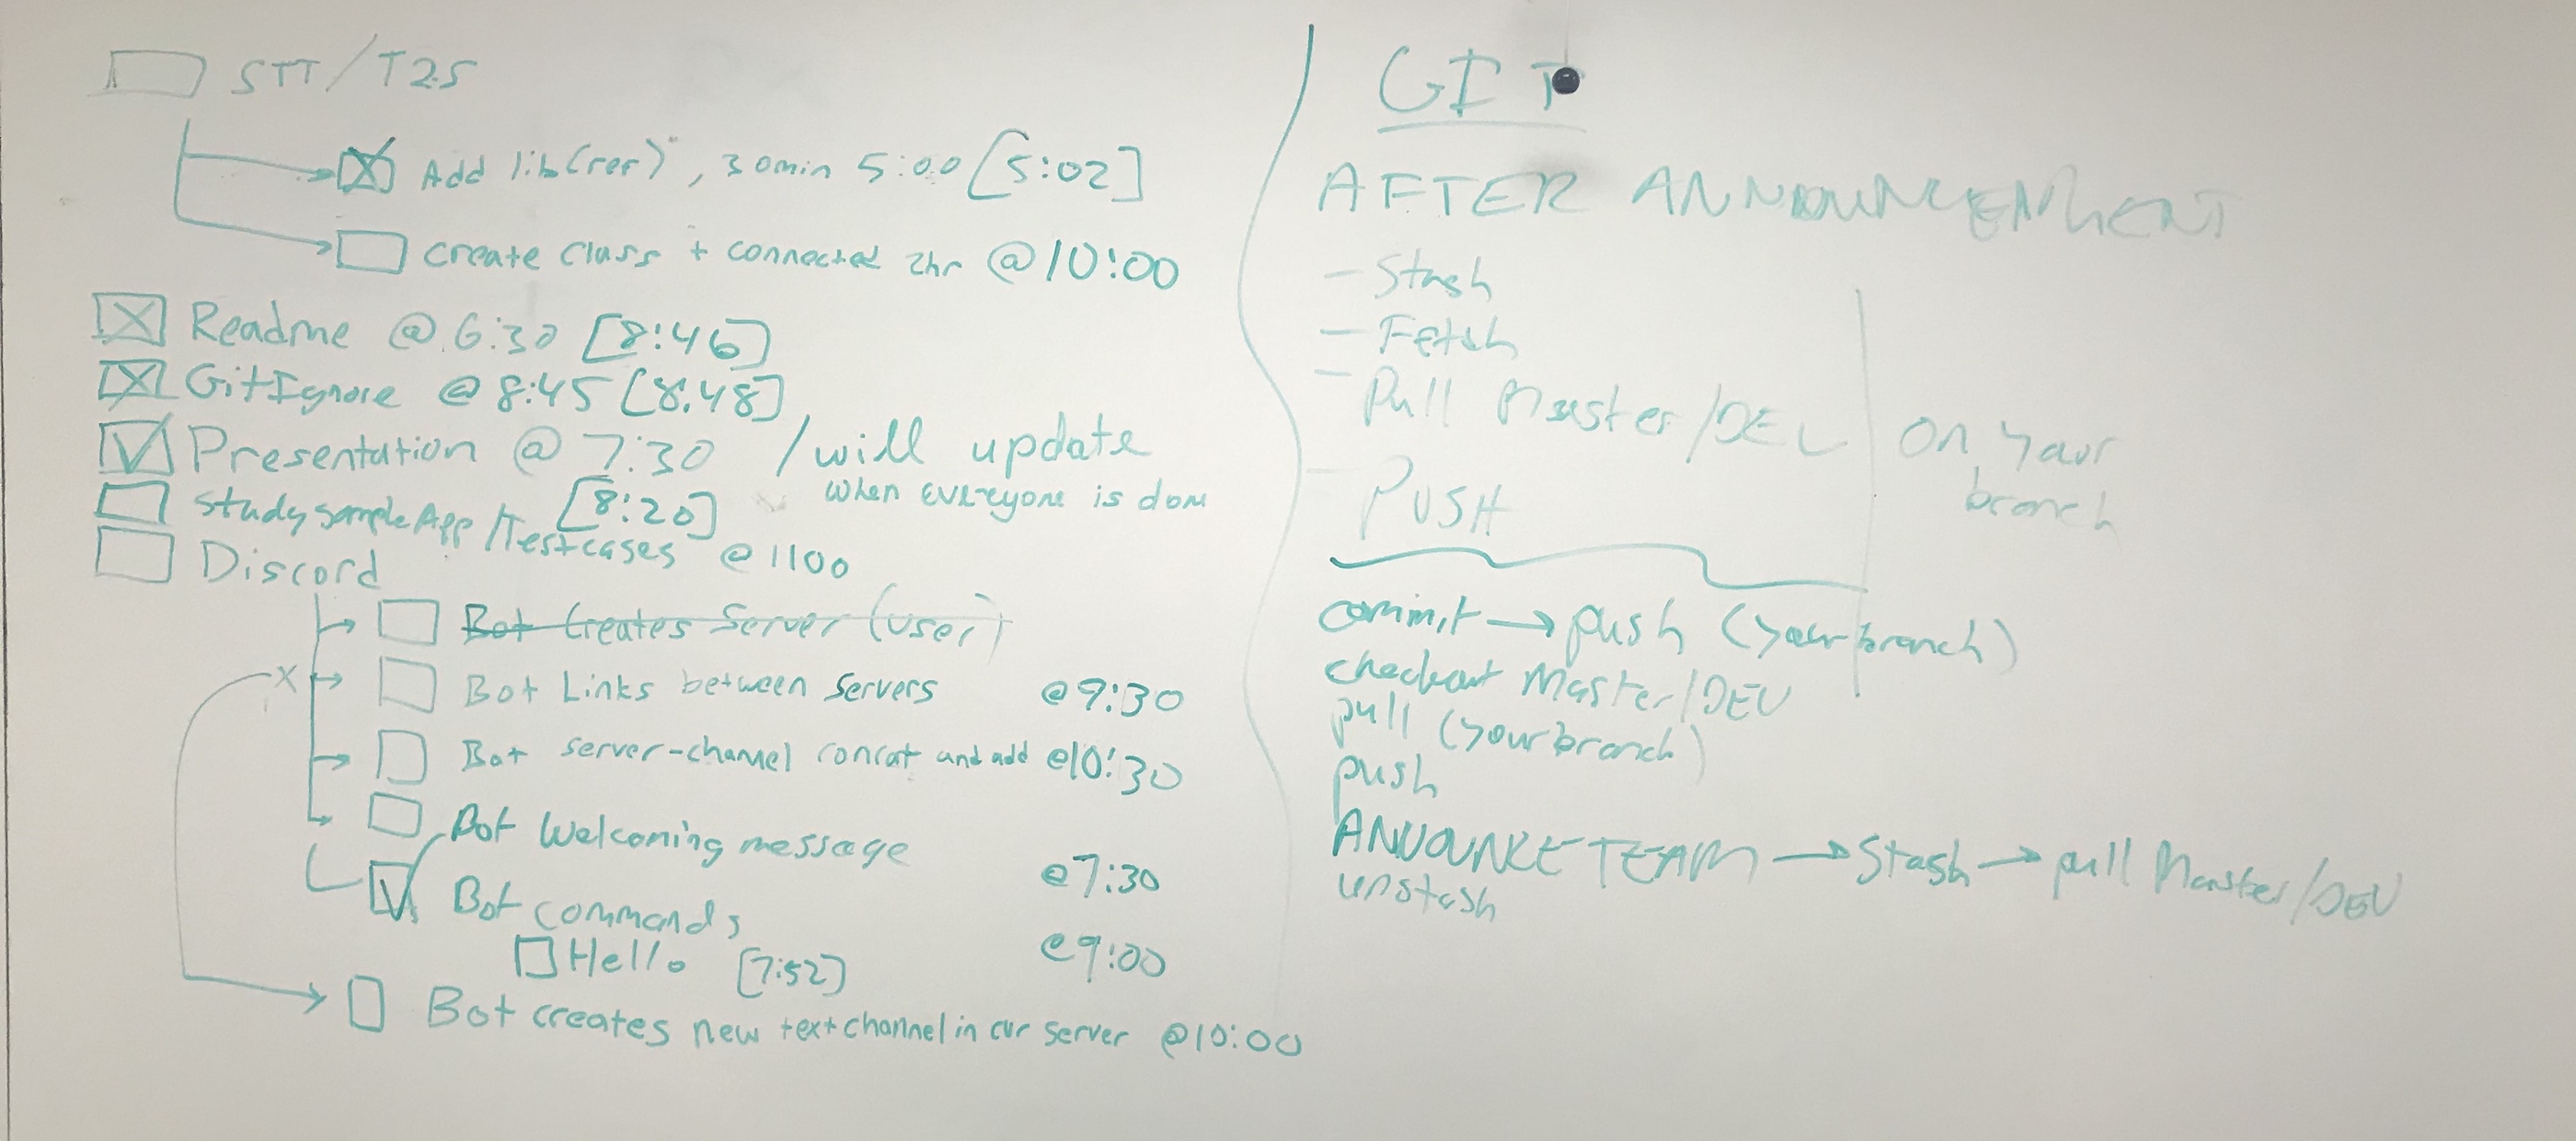 STT/T2S
Add lib(rer), 30min 5:00 [5:02]
create class + connected 2hr @10:00
Readme @ 6:30 [8:46]
GitIgnore @ 8:45 [8:48]
Presentation @ 7:30 / will update
when everyone is done
[8:20]
Study sample App /Testcases @ 1100
Discord
Bot Creates Server (user)
Bot Links between servers @9:30
Bot server-channel concat and add @10:30
Bot Welcoming message @7:30
Bot commands @9:00
Hello [7:52]
Bot creates new text channel in cur server @10:00
GIT
AFTER ANNOUNCEMENT
- Stash
- Fetch
- Pull Master/DEV
on your
branch
- PUSH
commit → push (your branch)
checkout Master/DEV
pull (your branch)
push
ANNOUNCE TEAM → Stash → pull Master/DEV
unstash